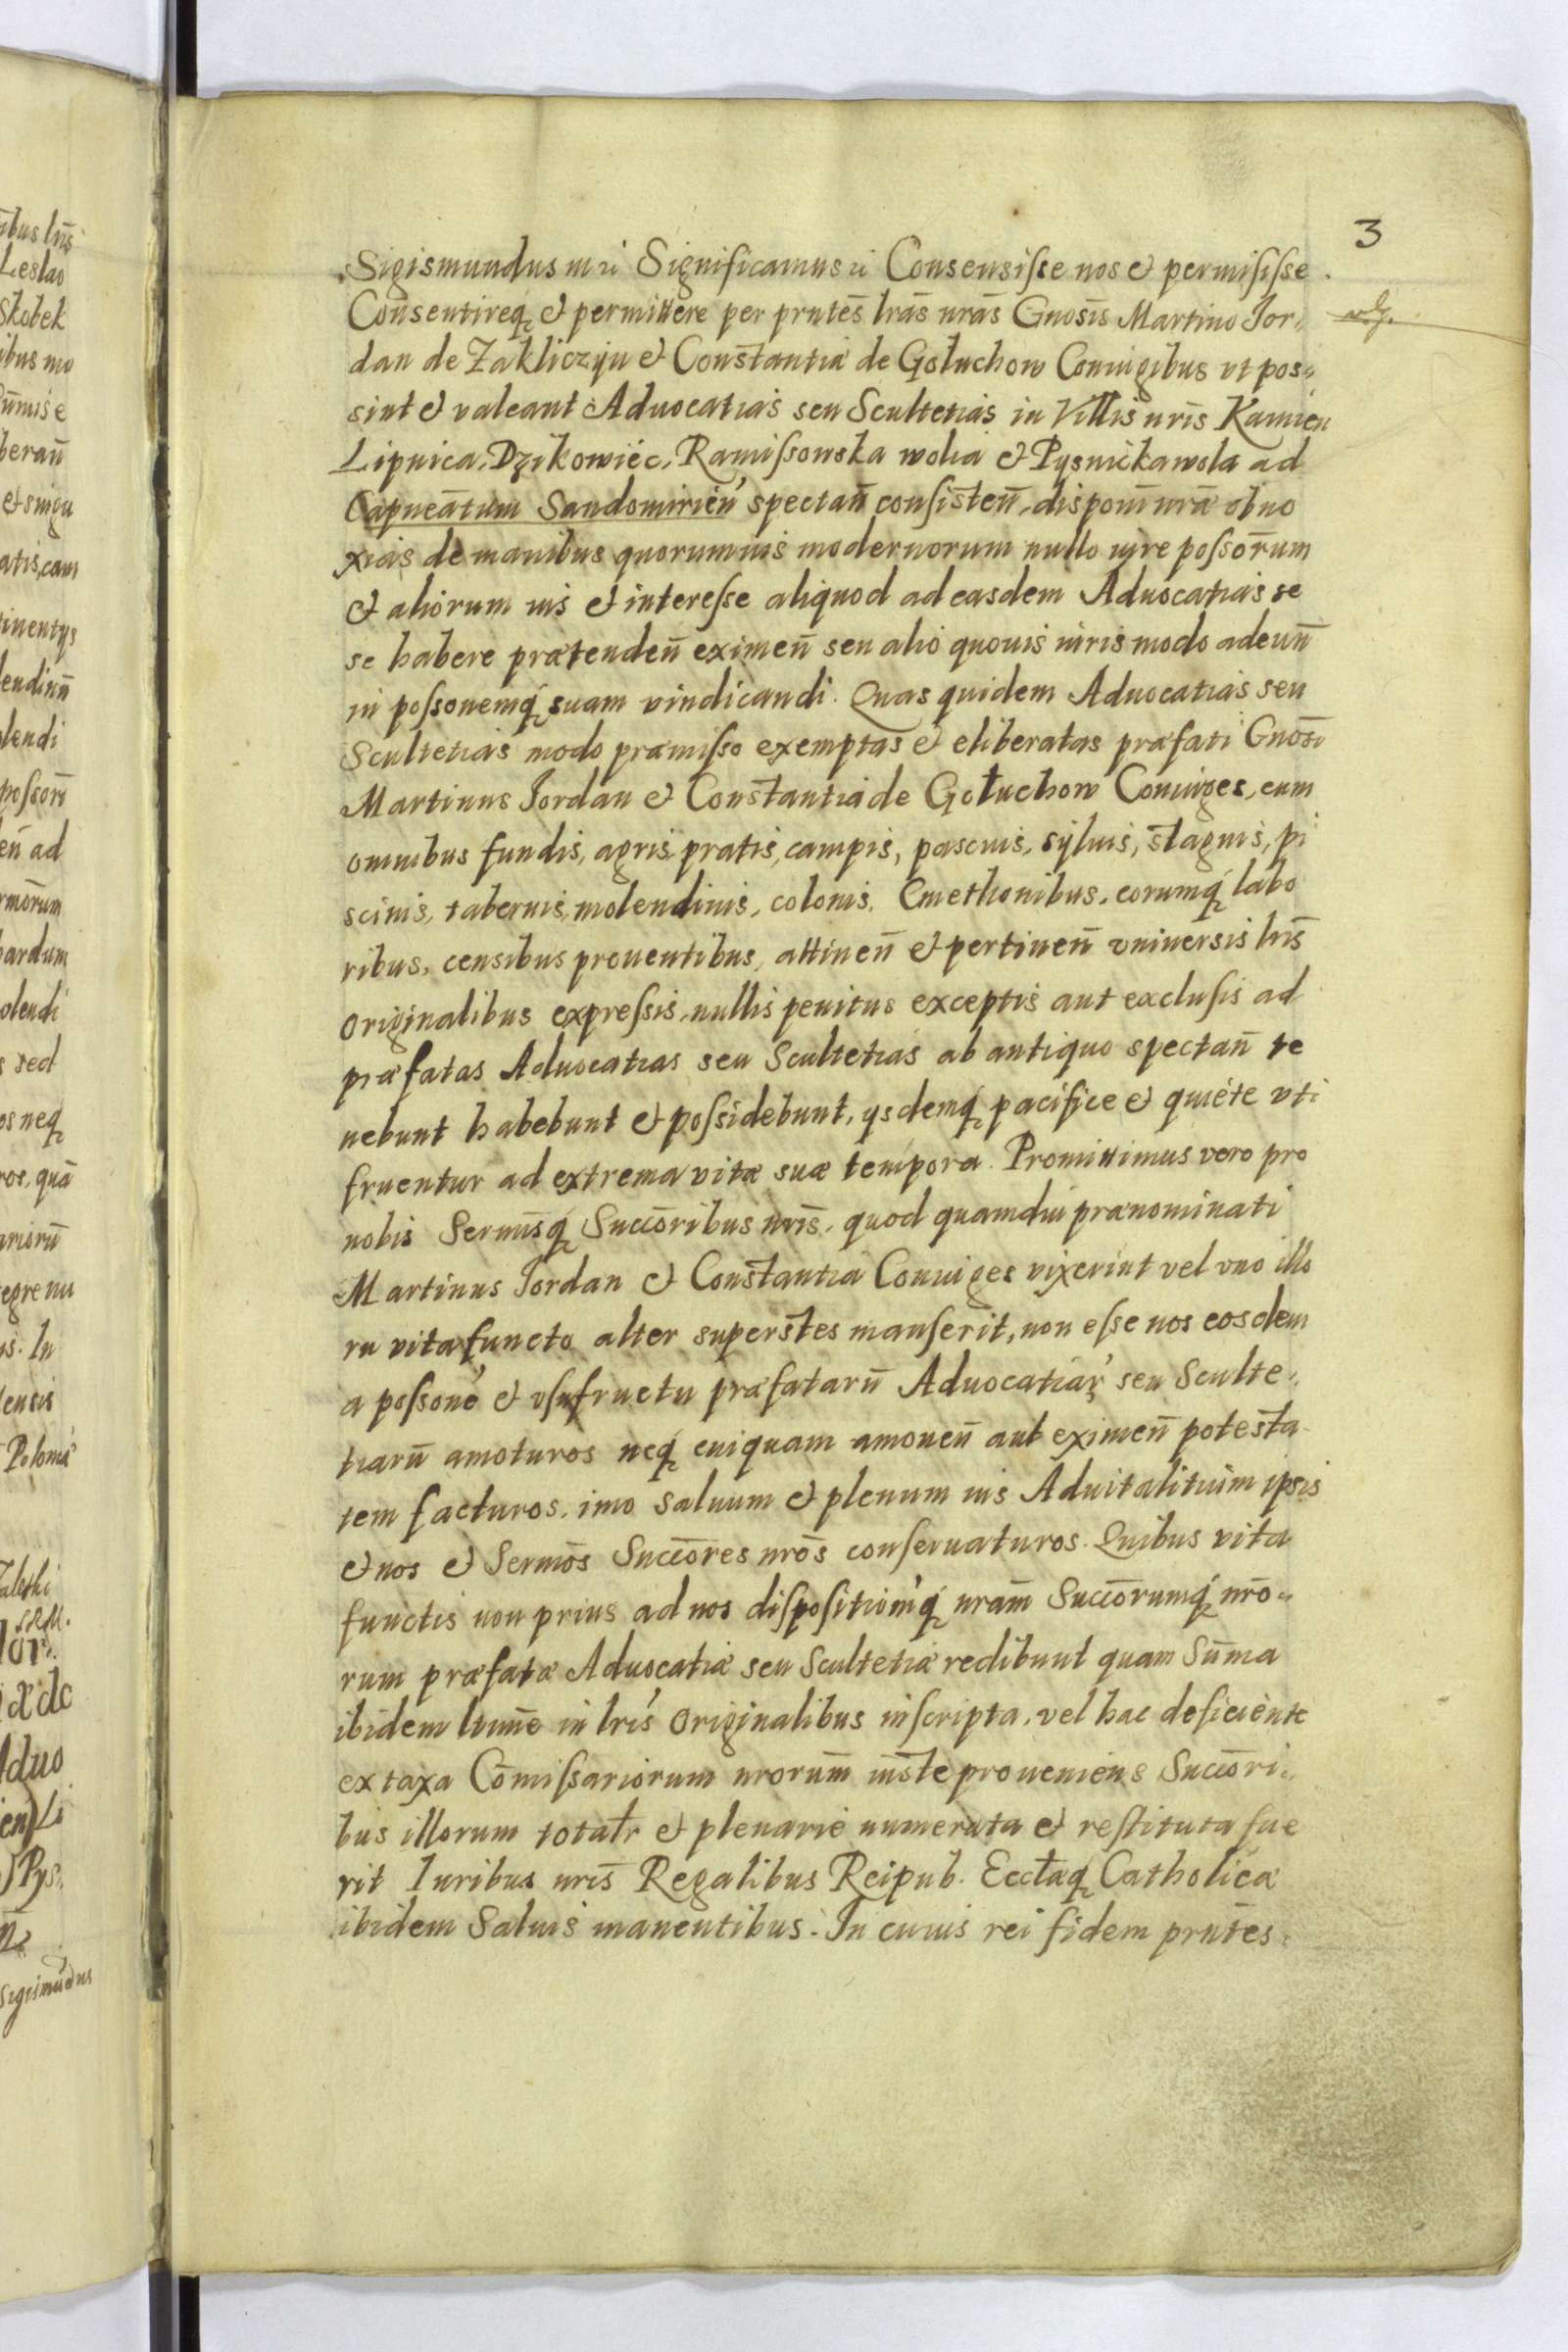 3
Sigismundus III etc Significamus etc Consensisse nos et permisisse
Consentireq et permittere per prntēs lrās nrās Gnosīs Martino Jor
dan de Zakliczyn et Constantiæ de Goluchow Coniugibus vt pos
sint et valeant Aduocatias seu Scultetias in Villis nrīs Kamien
Lipnica, Dzikowiec, Ramissowska wolia et Pysnickawola ad
Capneātum Sandomirien̄ spectan̄ consisten̄, dispoñi nrǣ obno
xias de manibus quorumuis modernorum nullo iure possōrum
et aliorum ius et interesse aliquod ad easdem Aduocatias se
se habere prætenden̄ eximen̄ seu alio quouis iuris modo adeun̄
in possonemq suam vindicandi. Quas quidem Aduocatias seu
Scultetias modo præmisso exemptas et eliberatas præfati Gnosī
Martinus Jordan et Constantia de Gołuchow Coniuges, cum
omnibus fundis, agris pratis, campis, pascuis, syluis, stagnis, pi
scinis, tabernis, molendinis, colonis, Cmethonibus, eorumq labo
ribus, censibus prouentibus, attinen̄ et pertinen̄ vniuersis lrīs
originalibus expressis, nullis penitus exceptis aut exclusis ad
præfatas Aduocatias seu Scultetias ab antiquo spectan̄ te
nebunt habebunt et possidebunt, ysdemq pacifice et quiete vti
fruentur ad extrema vitæ suæ tempora. Promittimus vero pro
nobis Sermīsq Succōribus nrīs, quod quamdiu prænominati
Martinus Jordan et Constantia Coniuges vixerint vel vno illo
ru vita functo alter superstes manserit, non esse nos eosdem
a possone et vsufructu præfatarū Aduocatiar seu Sculte
tiarū amoturos neq cuiquam amouen̄ aut eximen̄ potesta
tem facturos, imo Saluum et plenum ius Aduitalitium ipsis
et nos et Sermōs Succōres nrōs conseruaturos. Quibus vita
functis non prius ad nos dispositionq nram̄ Succōrumq nrō
rum præfatæ Aduocatiæ seu Scultetiæ redibunt quam Sum̄a
ibidem ltimē in lrīs originalibus inscripta, vel hac deficiente
ex taxa Com̄issariorum nrorum̄ iuste proueniens Succōri
bus illorum totalr et plenarie numerata et restituta fue
rit Iuribus nrīs Regalibus Reipub. Ecclæq Catholicæ
ibidem Saluis manentibus. In cuius rei fidem prntes